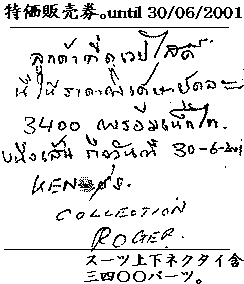 特価販売券。until 30/06/2001
ลูกค้าที่ดูเวปไสด์
นี้ให้ราคาพิเศษชุดละ
3400 พร้อมเน็คไท.
หนึ่งเส้น ถึงวันที่ 30-6-2001
COLLECTION
ROGER.
スーツ上下ネクタイ含
三四〇〇バーツ。